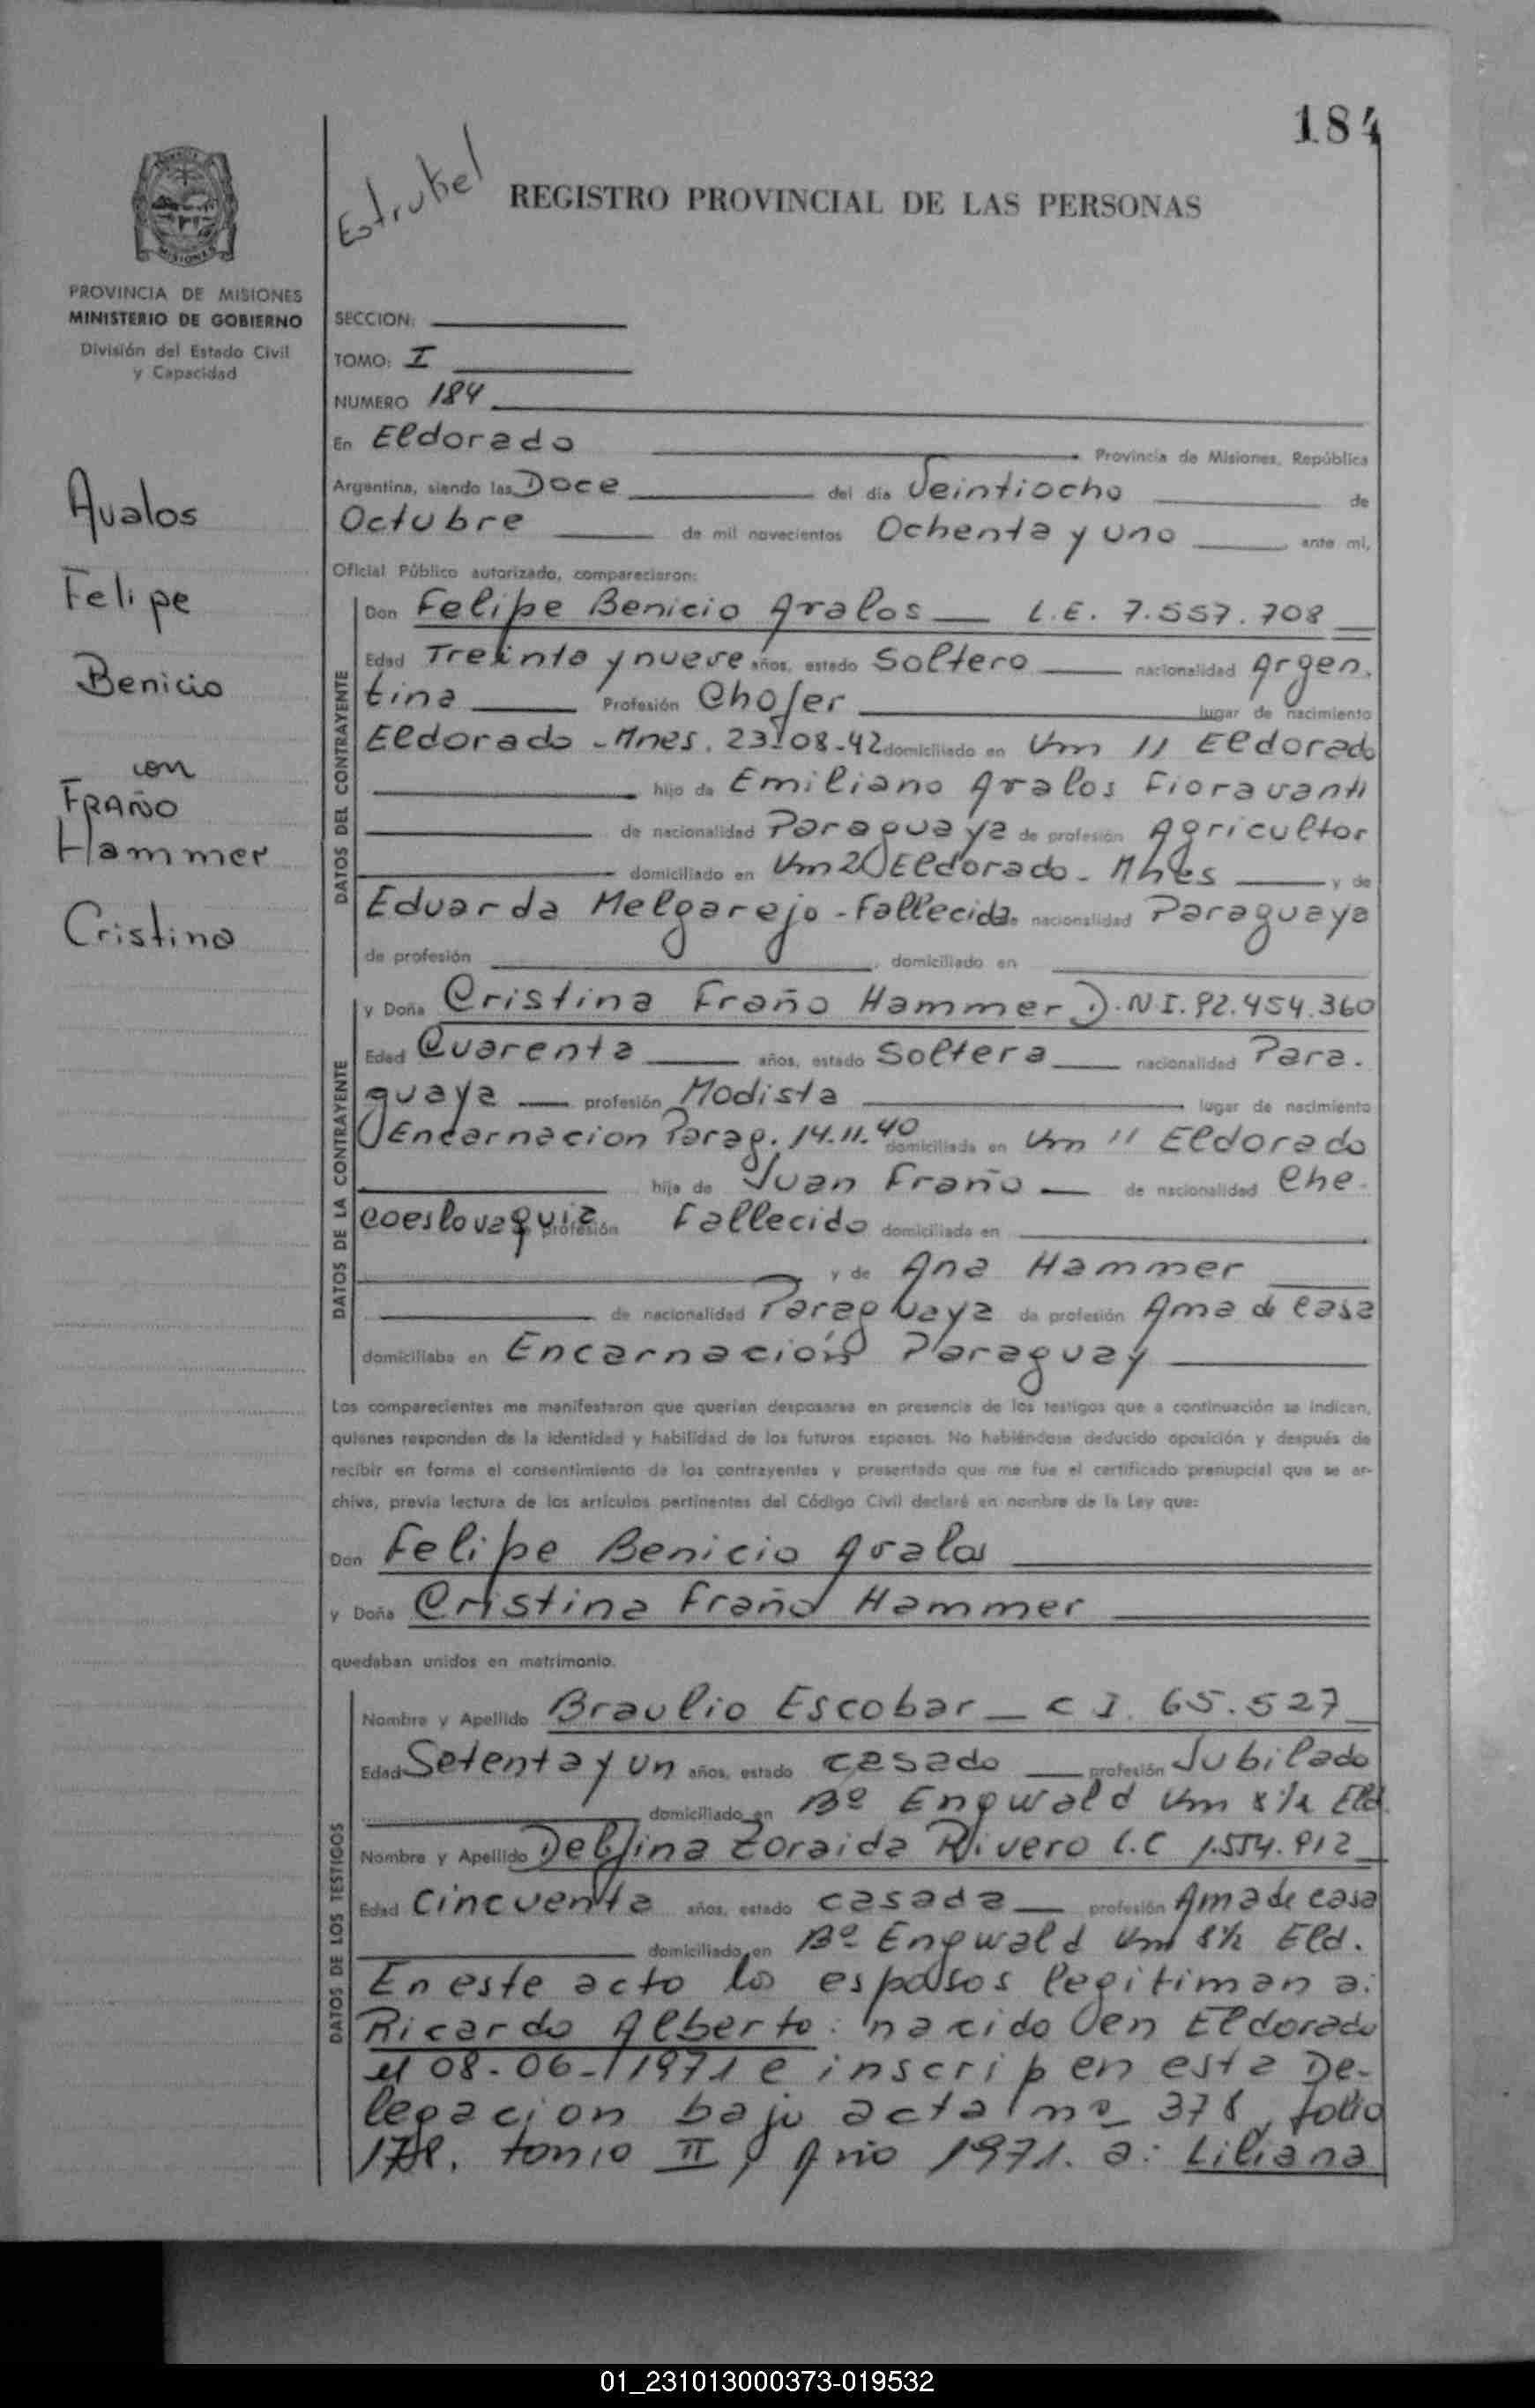 184
Estrubel
REGISTRO PROVINCIAL DE LAS PERSONAS
MISIONES
PROVINCIA DE MISIONES
MINISTERIO DE GOBIERNO
División del Estado Civil
y Capacidad
SECCION:
TOMO: I
NUMERO 184
En Eldorado Provincia de Misiones, República
Argentina, siendo las Doce del día Veintiocho de
Octubre de mil novecientos Ochenta y uno ante mi,
Oficial Público autorizado, comparecieron:
Avalos
Felipe
Benicio
con
FRAÑO
Hammer
Cristina
DATOS DEL CONTRAYENTE
Don Felipe Benicio Avalos L.E. 7.557.708
Edad Treinta y nueve años, estado Soltero nacionalidad Argen.
tina Profesión Chofer lugar de nacimiento
Eldorado - Mnes. 23-08-42 domiciliado en Km 11 Eldorado
hijo de Emiliano Avalos Fioravanti
de nacionalidad Paraguaya de profesión Agricultor
domiciliado en Km 20 Eldorado - Mnes y de
Eduarda Melgarejo - Fallecida de nacionalidad Paraguaya
de profesión , domiciliado en
DATOS DE LA CONTRAYENTE
y Doña Cristina Fraño Hammer D.N.I. 92.454.360
Edad Cuarenta años, estado Soltera nacionalidad Para.
guaya profesión Modista lugar de nacimiento
Encarnacion Parag. 14.11.40 domiciliada en Km 11 Eldorado
hija de Juan Fraño de nacionalidad Che.
coeslovaquia profesión Fallecido domiciliada en
y de Ana Hammer
de nacionalidad Paraguaya de profesión Ama de Casa
domiciliaba en Encarnación Paraguay
Los comparecientes me manifestaron que querían desposarse en presencia de los testigos que a continuación se indican,
quienes responden de la identidad y habilidad de los futuros esposos. No habiéndose deducido oposición y después de
recibir en forma el consentimiento de los contrayentes y presentado que me fue el certificado prenupcial que se ar-
chiva, previa lectura de los artículos pertinentes del Código Civil declaré en nombre de la Ley que:
Don Felipe Benicio Avalos
y Doña Cristina Fraño Hammer
quedaban unidos en matrimonio.
DATOS DE LOS TESTIGOS
Nombre y Apellido Braulio Escobar C I. 65.527
Edad Setenta y un años, estado casado profesión Jubilado
domiciliado en Bº Engwald Km 8 1/2 Eld.
Nombre y Apellido Delfina Zoraida Rivero L.C 1.554.912
Edad Cincuenta años, estado casada profesión Ama de casa
domiciliado en Bº Engwald Km 8 1/2 Eld.
En este acto los esposos legitiman a:
Ricardo Alberto: nacido en Eldorado
el 08-06-1971 e inscrip en esta De-
legacion bajo acta nº 378, folio
178. tomo II, Año 1971. a: Liliana
01_231013000373-019532